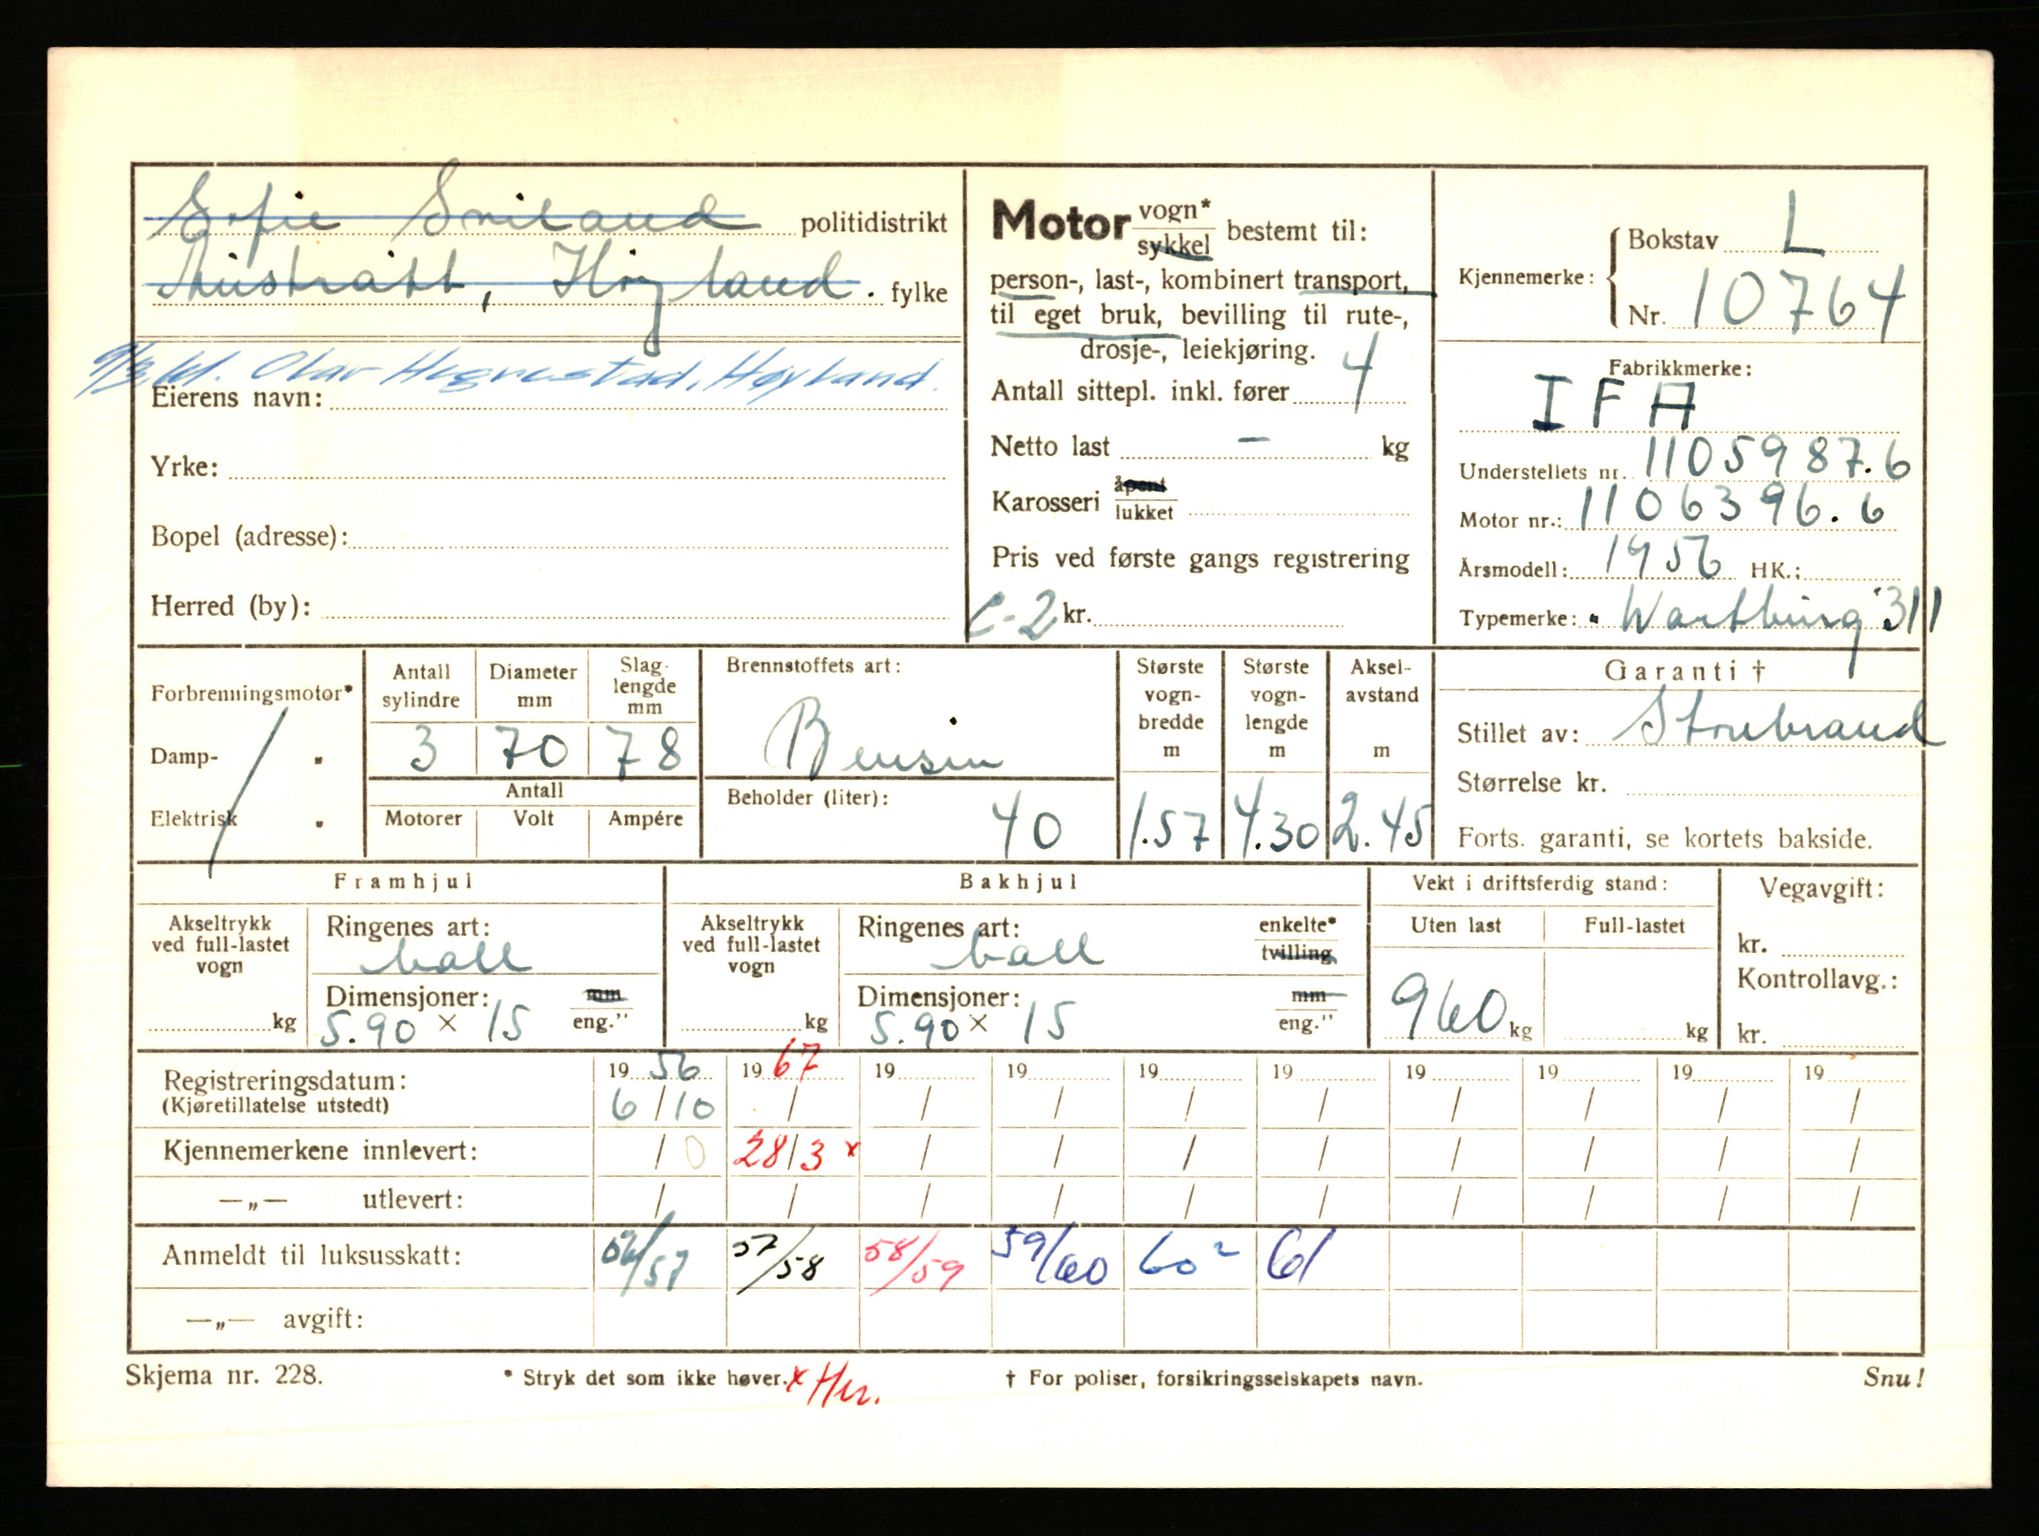 Sofie Smiland politidistrikt
Austrått, Høyland . fylke
Olav Hegrestad, Høyland.
Eierens navn:
Yrke:
Bopel (adresse):
Herred (by):
Motor vogn* sykkel bestemt til:
person-, last-, kombinert transport,
til eget bruk, bevilling til rute-,
drosje-, leiekjøring.
Antall sittepl. inkl. fører 4
Netto last - kg
Karosseri åpent lukket
Pris ved første gangs registrering
C-2 kr.
Kjennemerke: Bokstav L
Nr. 10764
Fabrikkmerke:
IFA
Understellets nr. 1105987.6
Motor nr.: 1106396.6
Årsmodell: 1956 HK.:
Typemerke: Wartburg 311
Forbrenningsmotor*
Damp- "
Elektrisk "
Antall sylindre Diameter mm Slaglengde mm
3 70 78
Antall
Motorer Volt Ampére
Brennstoffets art:
Bensin
Beholder (liter): 40
Største vognbredde m 1.57
Største vognlengde m 4.30
Akselavstand m 2.45
Garanti †
Stillet av: Storebrand
Størrelse kr.
Forts. garanti, se kortets bakside.
Framhjul
Akseltrykk ved full-lastet vogn kg
Ringenes art: ball
Dimensjoner: mm eng."
5.90 × 15
Bakhjul
Akseltrykk ved full-lastet vogn kg
Ringenes art: ball enkelte* tvilling
Dimensjoner: mm eng."
5.90 × 15
Vekt i driftsferdig stand:
Uten last Full-lastet
960 kg kg
Vegavgift:
kr.
Kontrollavg.:
kr.
Registreringsdatum: 19 56 19 67 19 19 19 19 19 19 19 19
(Kjøretillatelse utstedt) 6/10 / / / / / / / / /
Kjennemerkene innlevert: / 0 28/3 x / / / / / / / /
—„— utlevert: / / / / / / / / / /
Anmeldt til luksusskatt: 56/57 57/58 58/59 59/60 60² 61
—„— avgift:
Skjema nr. 228. * Stryk det som ikke høver. x Her. † For poliser, forsikringsselskapets navn. Snu!